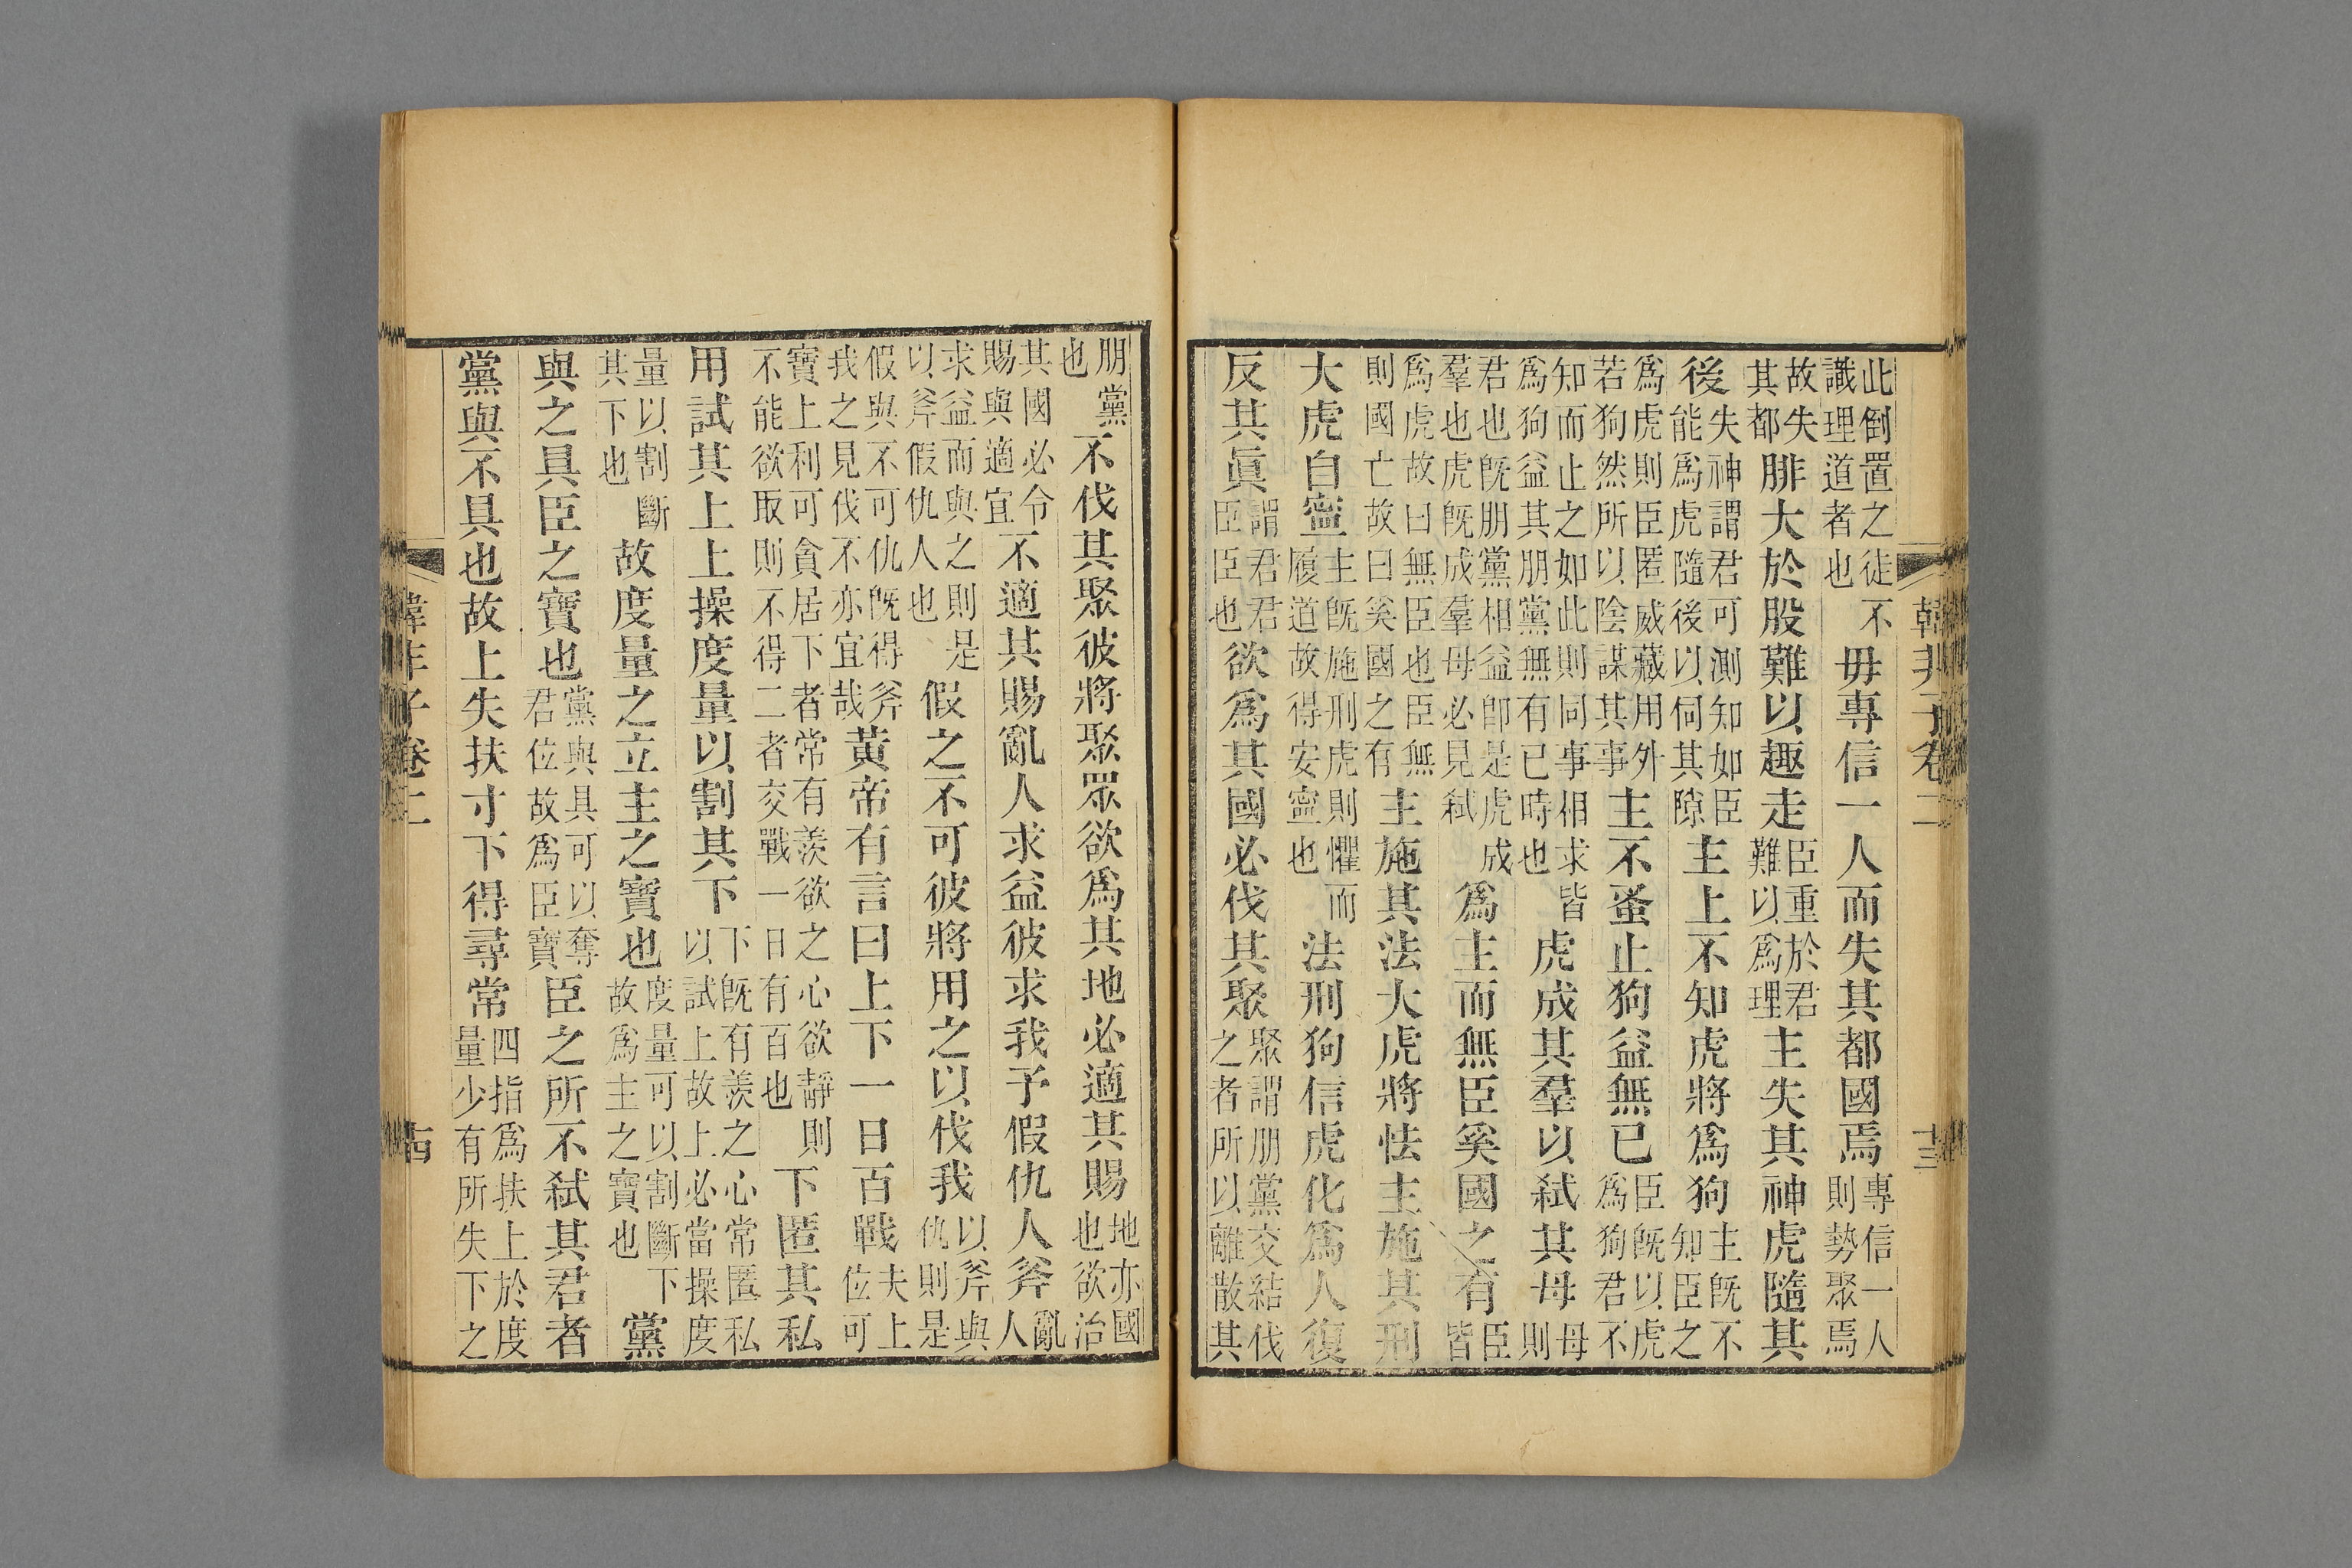 韓非子卷二 十三
此倒置之徒不識理道者也毋專信一人而失其都國焉專信一人則勢聚焉
故失其都腓大於股難以趣走臣重於君難以爲理主失其神虎隨其
後失神謂君可測知如臣能爲虎隨後以伺其隙主上不知虎將爲狗主旣不知臣之
爲虎則臣匿威藏用外若狗然所以陰謀其事主不蚤止狗益無已臣旣以虎爲狗君不
知而止之如此則同事相求皆爲狗益其朋黨無有已時也虎成其羣以弑其母母則
君也旣朋黨相益卽是虎成羣也虎旣成羣母必見弑爲主而無臣奚國之有臣皆
爲虎故曰無臣也臣無則國亡故曰奚國之有主施其法大虎將怯主施其刑
大虎自寧主旣施刑虎則懼而履道故得安寧也法刑狗信虎化爲人復
反其眞謂君君臣臣也欲爲其國必伐其聚聚謂朋黨交結伐之者所以離散其
朋黨也不伐其聚彼將聚眾欲爲其地必適其賜地亦國也欲治
其國必令賜與適宜不適其賜亂人求益彼求我予假仇人斧亂人
求益而與之則是以斧假仇人也假之不可彼將用之以伐我以斧與仇則是
假與不可仇旣得斧我之見伐不亦宜哉黃帝有言曰上下一日百戰夫上位可
寶上利可貪居下者常有羨欲之心欲靜則不能欲取則不得二者交戰一日有百也下匿其私
用試其上上操度量以割其下下旣有羨之心常匿私以試上故上必當操度
量以割斷其下也故度量之立主之寶也度量可以割斷下故爲主之寶也黨
與之具臣之寶也黨與具可以奪君位故爲臣寶臣之所不弑其君者
黨與不具也故上失扶寸下得尋常四指爲扶上於度量少有所失下之
韓非子卷二 十四